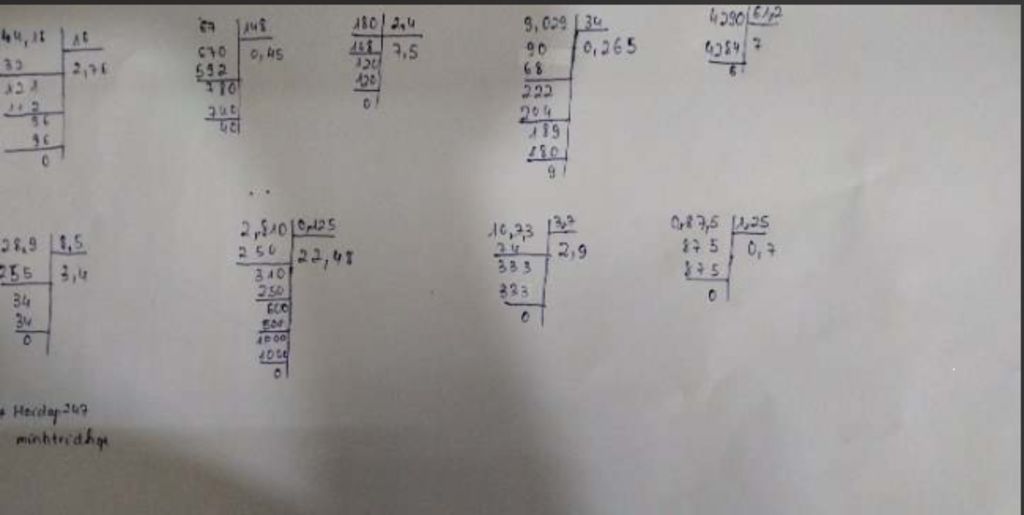 44,16 16
32 2,76
121
112
96
96
0
67 148
670 0,45
592
780
740
40
180 2,4
168 7,5
120
120
0
9,029 34
90 0,265
68
222
204
189
180
9
4290 61,2
4284 7
6
28,9 8,5
255 3,4
34
34
0
2,810 0,125
250 22,48
310
250
600
500
1000
1000
0
10,73 3,7
74 2,9
333
333
0
0,87,5 1,25
875 0,7
875
0
Hoidap247
minhtridhqn